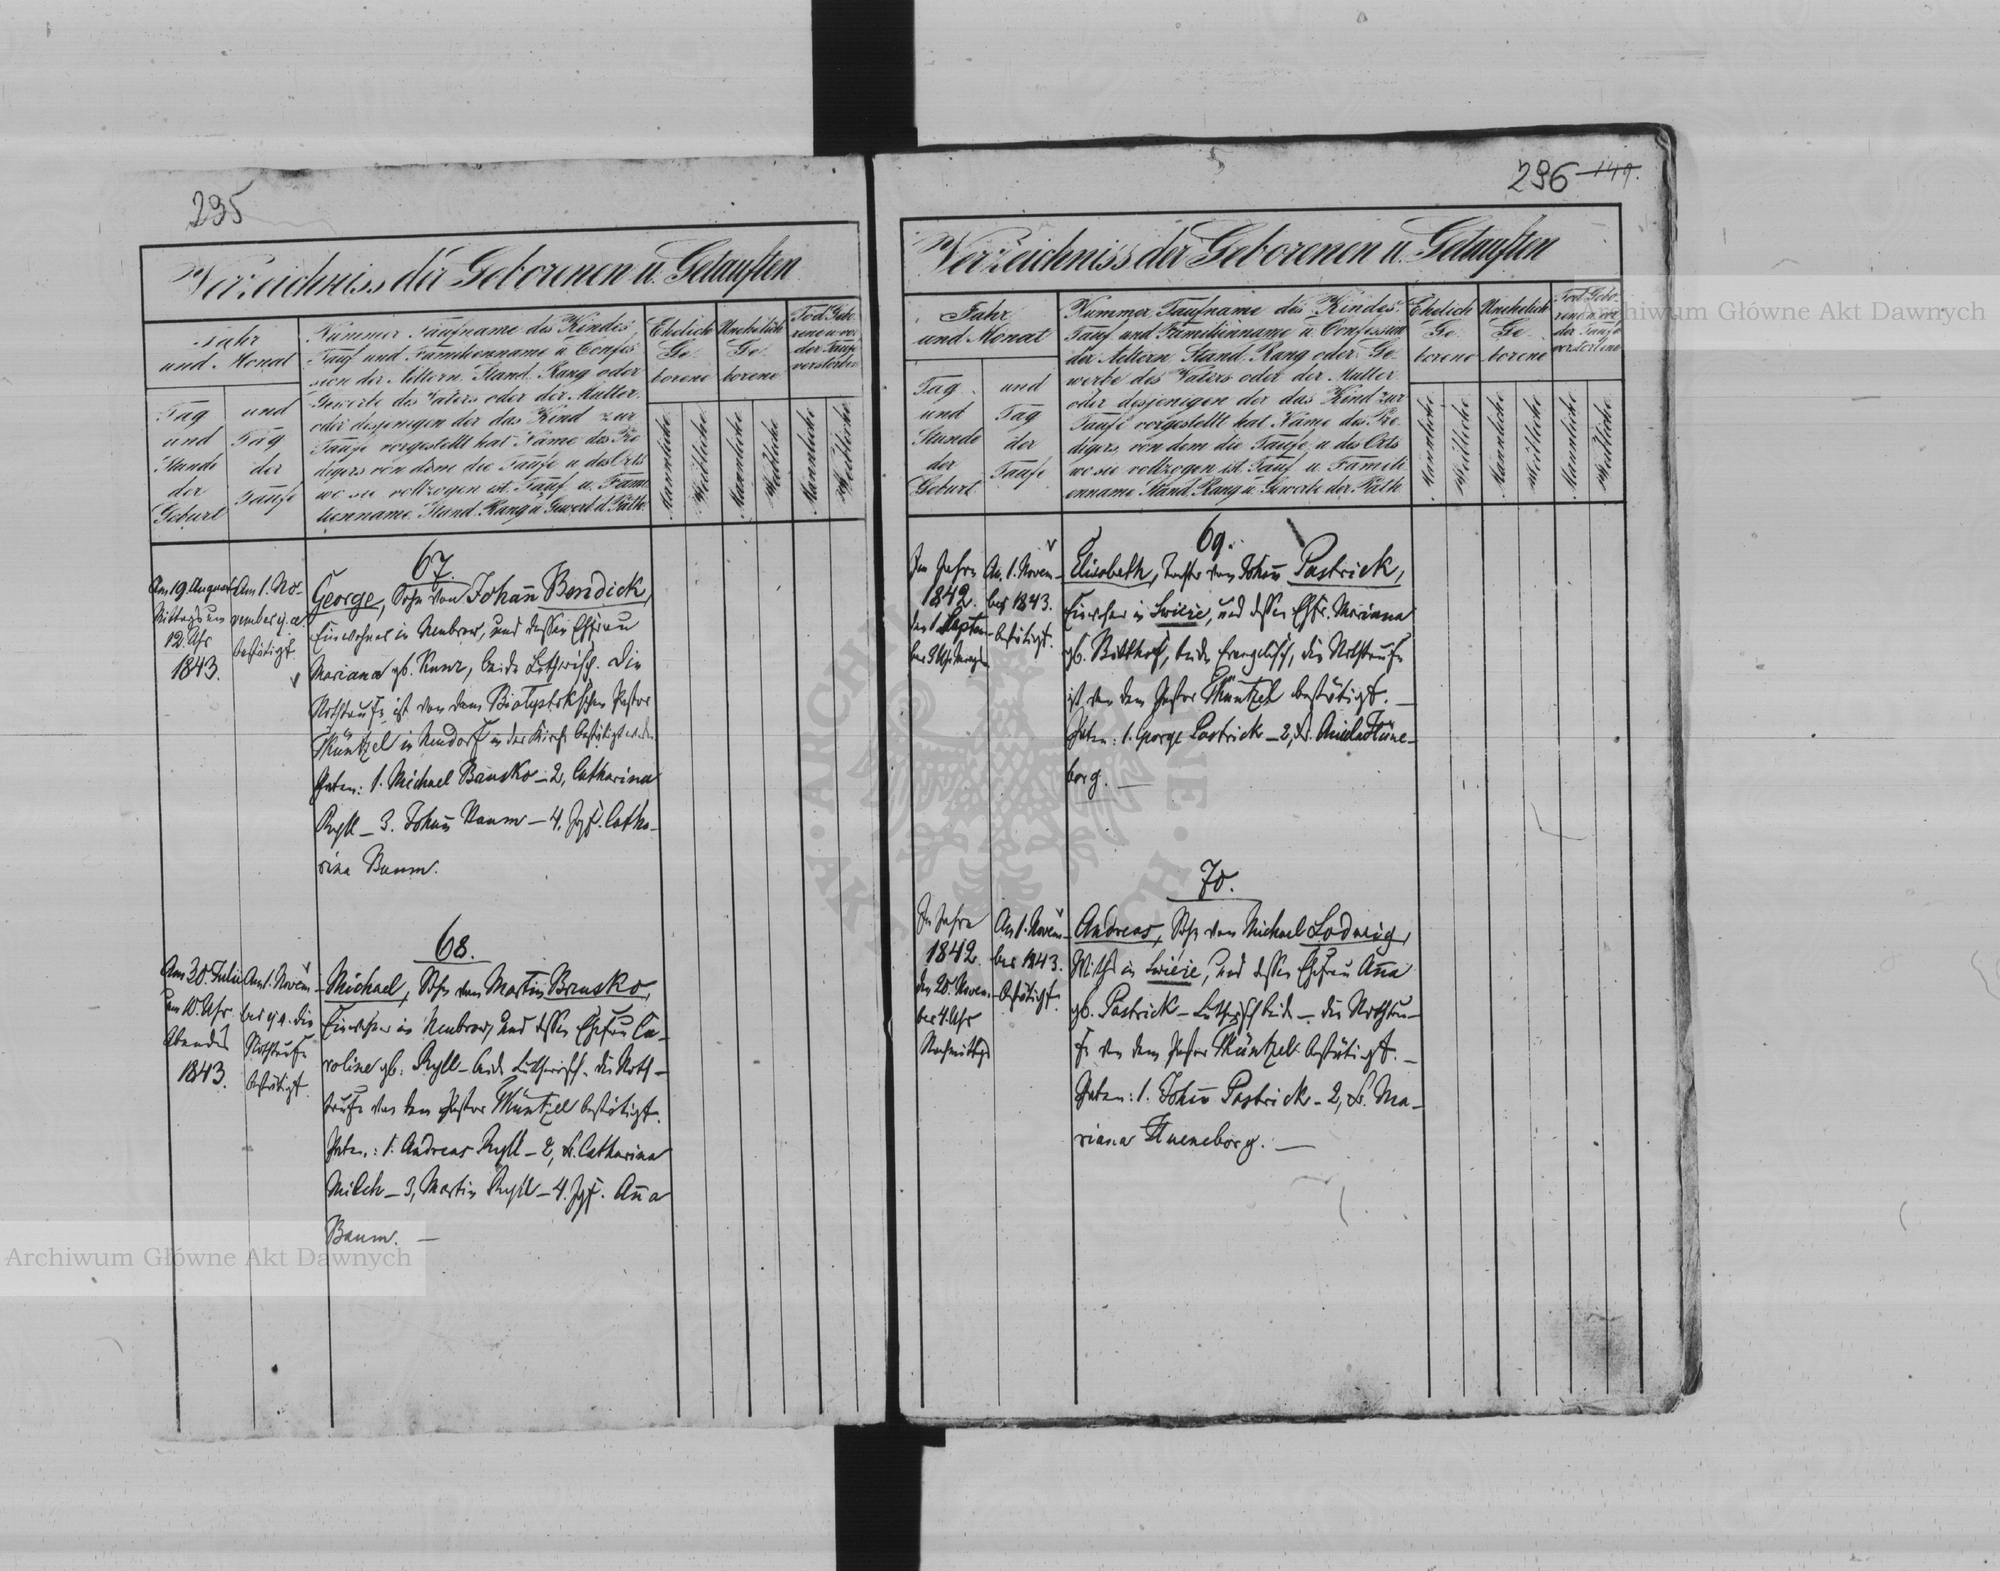 235
Verzeichniss der Geborenen u. Getauften
Jahr
und Monat
Tag
und
Stunde
der
Geburt
und
Tag
der
Taufe
Nummer Taufname des Kindes,
Tauf und Familienname u Confes
sion der Aeltern Stand Rang oder
Gewerbe des Vaters oder der Mutter
oder desjenigen der das Kind zur
Taufe vorgestellt hat Name des Pre
digers von dem die Taufe u des Orts
wo sie vollzogen ist. Tauf u. Fami
lienname Stand Rang u Gewerb d. Path.
Ehelich
Ge
borene
Unehelich
Ge
borene
Tod Gebo
rene u vor
der Taufe
verstorben
Männliche
Weibliche
Männliche
Weibliche
Männliche
Weibliche
Am 19. August
Mittags um
12 Uhr
1843.
Am 1. No-
vember ej. a.
bestätigt.
67.
George, Sohn von Johann Bendick,
Einwohner in Neubrow, und dessen Ehefrau
Mariana gb. Kunz, beide Lutherisch. Die
Nothtaufe ist von dem Bialystokschen Pastor
Müntzel in Neudorf in der Kirche bestätigt worden.
Paten: 1. Michael Brusko – 2, Catharina
Ryll – 3. Johann Baum – 4. Jgf. Catha-
rina Baum.
Am 30. Julii
um 10 Uhr
Abends
1843.
Am 1. Novem-
ber ej. a. die
Nothtaufe
bestätigt.
68.
Michael, Sohn von Martin Brusko,
Einwohner in Neubrow, und dessen Ehefrau Ca-
roline gb. Ryll – beide Lutherisch. die Noth-
taufe von dem Pastor Müntzel bestätigt.
Paten: 1. Andreas Ryll – 2, Fr. Catharina
Milch – 3, Martin Ryll – 4. Jgf. Anna
Baum. –
296 149.
Verzeichniss der Geborenen u. Getauften
Jahr
und Monat
Tag
und
Stunde
der
Geburt
und
Tag
der
Taufe
Nummer Taufname des Kindes.
Tauf und Familienname u Confession
der Aeltern Stand. Rang oder Ge
werbe des Vaters oder der Mutter
oder desjenigen der das Kind zur
Taufe vorgestellt hat Name des Pre
digers von dem die Taufe u des Orts
wo sie vollzogen ist. Tauf u. Famili
enname Stand. Rang u. Gewerbe der Path.
Ehelich
Ge
borene
Unehelich
Ge
borene
Tod Gebo
rene u. vor
der Taufe
verstorbene
Männliche
Weibliche
Männliche
Weibliche
Männliche
Weibliche
Im Jahre
1842.
den 1. Septem-
ber
Am 1. Novem-
ber 1843.
bestätigt.
69.
Elisabeth, Tochter von Johann Pastrick,
Einwohner in , und dessen Ehfr. Mariana
gb. , beide Evangelisch, die Nothtaufe
ist von dem Pastor Müntzel bestätigt. –
Paten: 1. George Pastrick – 2, Fr. Hüne-
borg. –
Im Jahre
1842.
den 20. Novem-
ber 4 Uhr
Nachmittgs
Am 1. Novem-
ber 1843.
bestätigt.
70.
Andreas, Sohn von Michael Lodwig,
Wirths in , und dessen Ehefrau Anna
gb. Pastrick – Lutherisch beide – die Nothtau-
fe von dem Pastor Müntzel bestätigt. –
Paten: 1. Johann Pastrick – 2, Fr. Ma-
riana Hueneborg. –
Archiwum Główne Akt Dawnych
Archiwum Główne Akt Dawnych